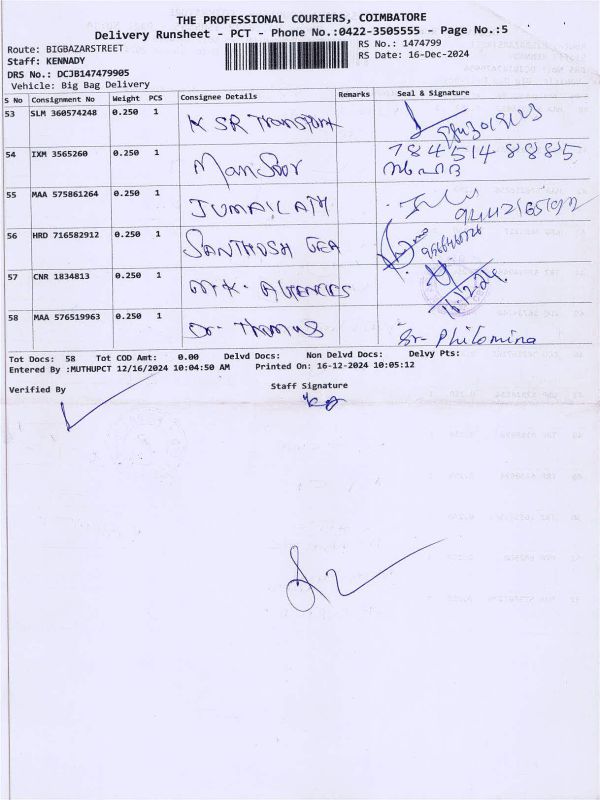 THE PROFESSIONAL COURIERS, COIMBATORE
Delivery Runsheet - PCT - Phone No.:0422-3505555 - Page No.:5
Route: BIGBAZARSTREET
RS No.: 1474799
Staff: KENNADY
RS Date: 16-Dec-2024
DRS No.: DCJB147479905
Vehicle: Big Bag Delivery
S No Consignment No Weight PCS Consignee Details Remarks Seal & Signature
53 SLM 360574248 0.250 1 K SR Transport
54 IXM 3565260 0.250 1 Mansoor 7845148885
55 MAA 575861264 0.250 1
56 HRD 716582912 0.250 1 SANTHOSH
57 CNR 1834813 0.250 1 M.K. AGENCIES 16.12.24
58 MAA 576519963 0.250 1 Dr. Thomas Sr- Philomina
Tot Docs: 58 Tot COD Amt: 0.00 Delvd Docs: Non Delvd Docs: Delvy Pts:
Entered By :MUTHUPCT 12/16/2024 10:04:50 AM Printed On: 16-12-2024 10:05:12
Verified By
Staff Signature